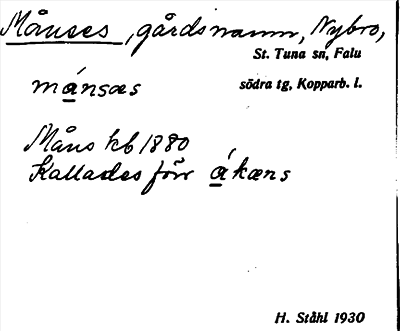 Månses, gårdsnamn, Nybro,
St. Tuna sn, Falu
södra tg, Kopparb. l.
månsæs
Måns kb 1880
Kallades förr ákæns
H. Ståhl 1930